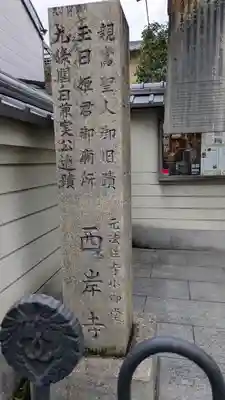 親鸞聖人御旧蹟
元法性寺小御堂
西岸寺
玉日姫君御廟所
九條関白兼実公遺蹟